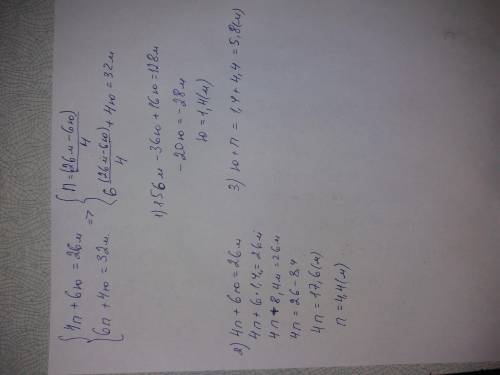 {4п + 6ю = 26м
{6п + 4ю = 32м. =>
{п = (26м-6ю)/4
{6 (26м-6ю)/4 + 4ю = 32м
1) 156м - 36ю + 16ю = 128м
-20ю = -28м
ю = 1,4(м)
2) 4п + 6ю = 26м
4п + 6·1,4 = 26м
4п + 8,4м = 26м
4п = 26 - 8,4
4п = 17,6(м)
п = 4,4(м)
3) ю + п = 1,4 + 4,4 = 5,8(м)